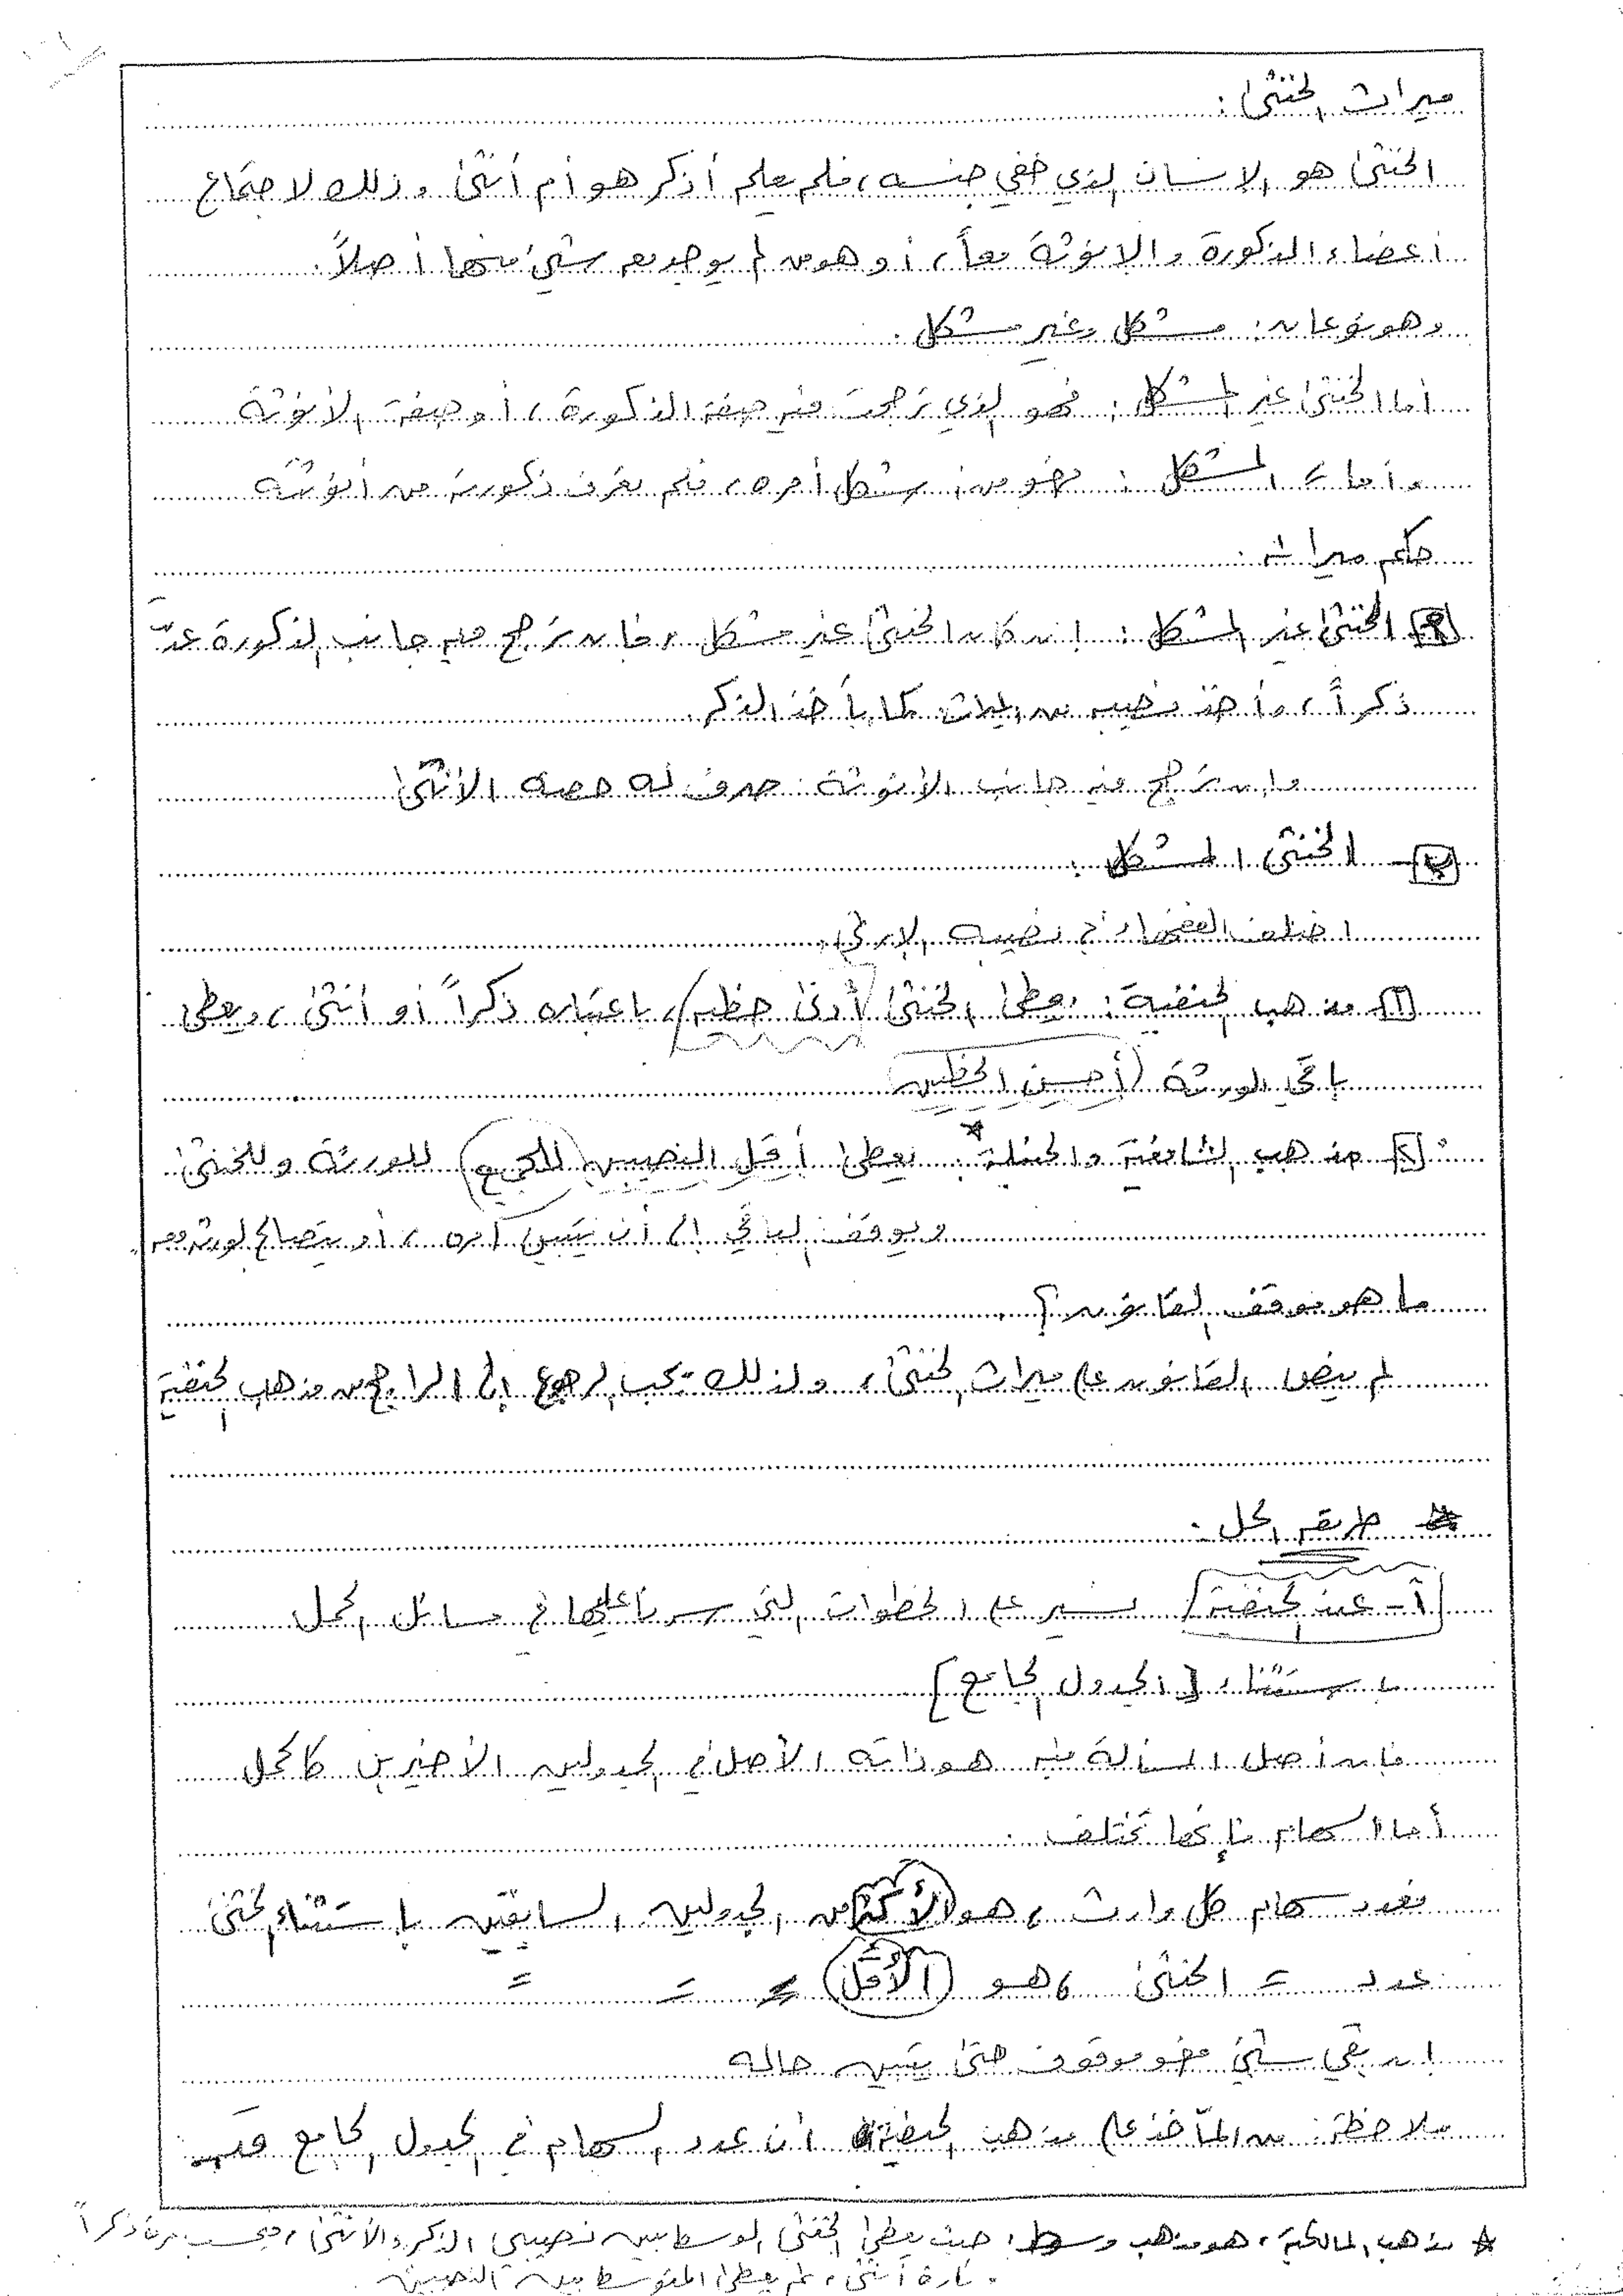 ميراث الخنثى :
الخنثى هو الإنسان الذي خفي جنسه، فلم يعلم أذكر هو أم أنثى وذلك لاجتماع
أعضاء الذكورة والأنوثة معاً، أو هو من لم يوجد معه شيئ منها أصلاً.
وهو نوعان : مشكل وغير مشكل .
أما الخنثى غير المشكل : فهو الذي ترجحت فيه صفة الذكورة، أو صفة الأنوثة
وأما = المشكل : فهو من أشكل أمره، فلم تعرف ذكورته من أنوثته
حكم ميراثه :
أ الخنثى غير المشكل : إن كان الخنثى غير مشكل، فإن ترجح فيه جانب الذكورة عدّ
ذكراً، وأخذ نصيبه من الميراث كما يأخذ الذكر.
وإن ترجح فيه جانب الأنوثة : صرف له حصة الأنثى
ب - الخنثى المشكل :
اختلف الفقهاء في نصيبه الإرثي.
1 مذهب الحنفية : يعطى الخنثى (أدنى حظيه)، باعتباره ذكراً أو أنثى، ويعطى
باقي الورثة (أحسن الحظين)
2 مذهب الشافعية والحنبلية* : يعطى أقل النصيبين (للجميع) للورثة وللخنثى
ويوقف الباقي إلى أن يتبين أمره، أو يتصالح الورثة
ما هو موقف القانون ؟
لم ينص القانون على ميراث الخنثى، ولذلك يجب الرجوع إلى الراجح من مذهب الحنفية
* طريقة الحل :
أ - عند الحنفية / نسير على الخطوات التي سرنا عليها في مسائل الحمل
باستثناء [الجدول الجامع]
فإن أصل المسألة فيه هو ذاته الأصل في الجدولين الأخيرين كالحمل
أما السهام فإنها تختلف .
فعدد سهام كل وارث، هو (الأكثر) من الجدولين السابقين باستثناء الخنثى
عدد = الخنثى، هو (الأقل) = = =
إن بقي شيئ فهو موقوف حتى يتبين حاله
ملاحظة : من المآخذ على مذهب الحنفية أن عدد السهام في الجدول الجامع قد
* مذهب المالكية، هو مذهب وسط، حيث يعطى الخنثى الوسط بين نصيبي الذكر والأنثى، فيحسب مرة ذكراً
تارة أنثى، ثم يعطى المتوسط بين النصيبين.